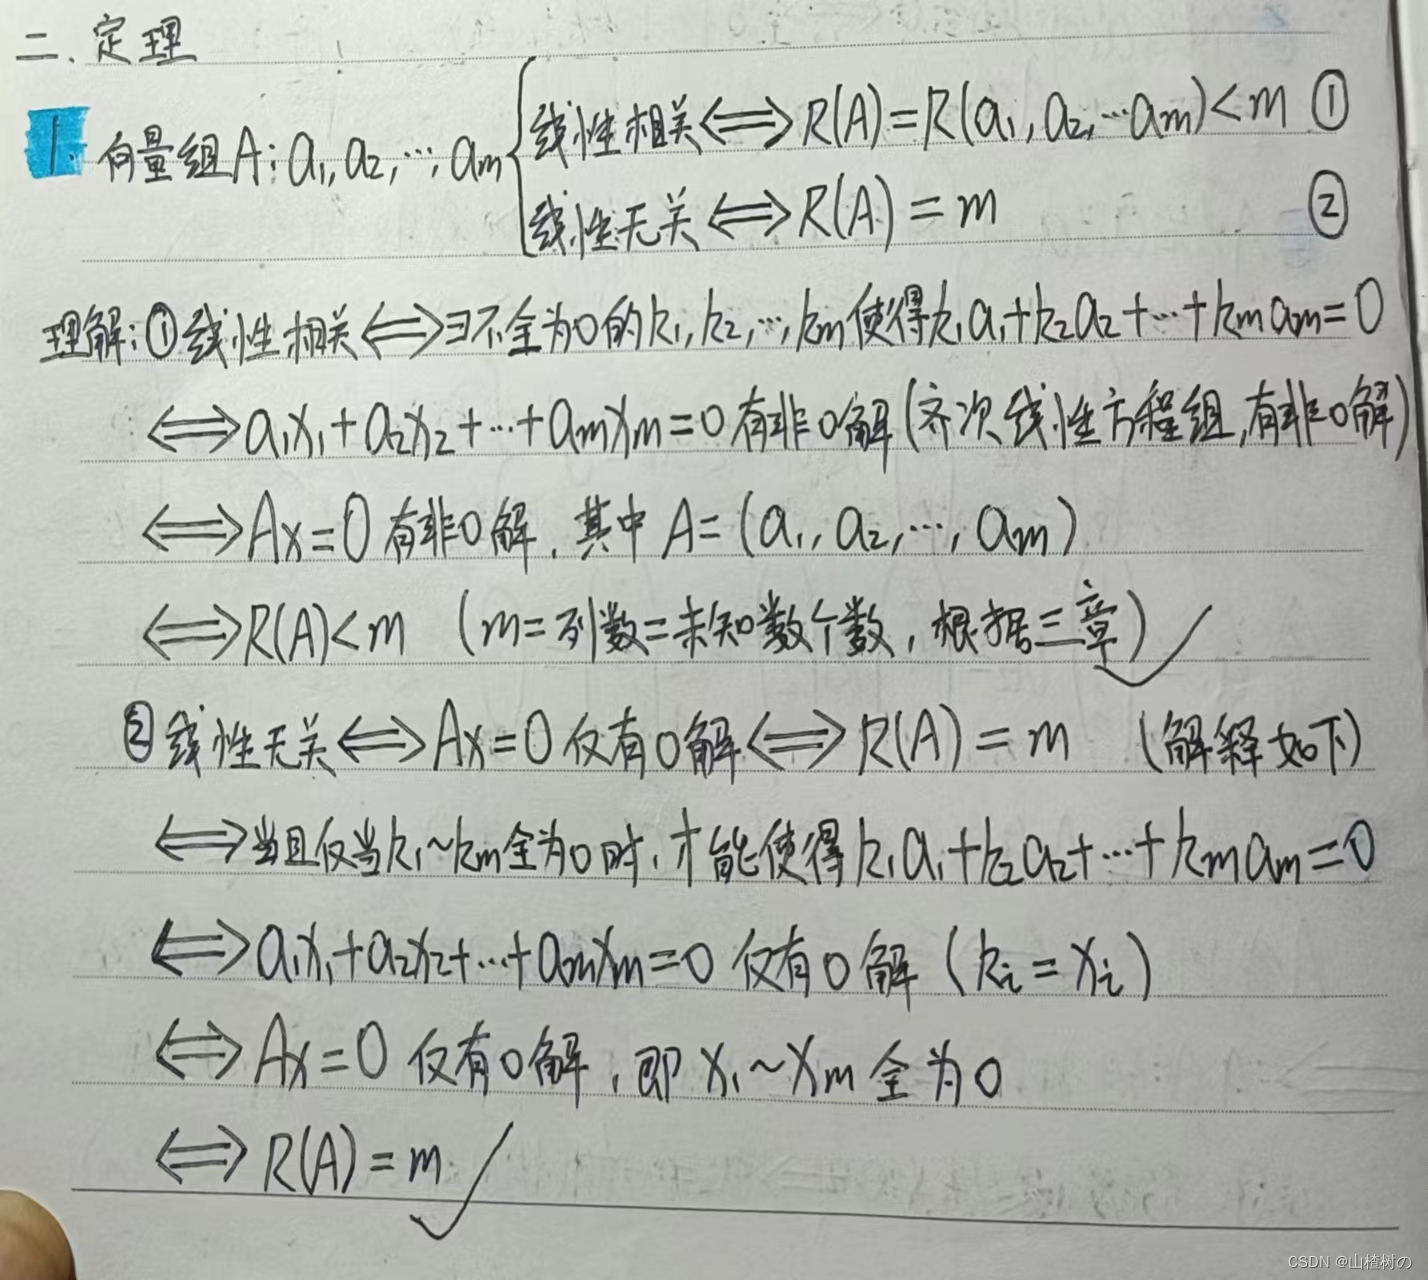 二、定理
1. 向量组A:a₁,a₂,…,aₘ { 线性相关⟺R(A)=R(a₁,a₂,…aₘ)<m ①
线性无关⟺R(A)=m ②
理解:①线性相关⟺∃不全为0的k₁,k₂,…,kₘ使得k₁a₁+k₂a₂+…+kₘaₘ=0
⟺a₁x₁+a₂x₂+…+aₘxₘ=0有非0解(齐次线性方程组,有非0解)
⟺Ax=0有非0解,其中A=(a₁,a₂,…,aₘ)
⟺R(A)<m (m=列数=未知数个数,根据三章)✓
②线性无关⟺Ax=0仅有0解⟺R(A)=m (解释如下)
⟺当且仅当k₁~kₘ全为0时,才能使得k₁a₁+k₂a₂+…+kₘaₘ=0
⟺a₁x₁+a₂x₂+…+aₘxₘ=0 仅有0解(kᵢ=xᵢ)
⟺Ax=0 仅有0解,即x₁~xₘ全为0
⟺R(A)=m ✓
CSDN @山楂树の